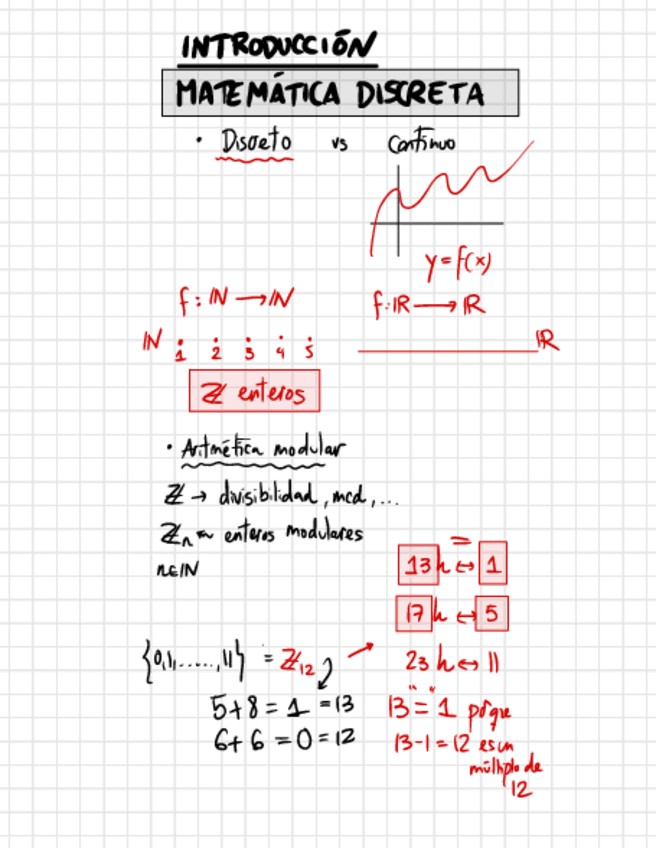 INTRODUCCIÓN
MATEMÁTICA DISCRETA
• Discreto vs Continuo
y = f(x)
f: ℕ → ℕ
f: ℝ → ℝ
ℕ 1 2 3 4 5
ℝ
ℤ enteros
• Aritmética modular
ℤ → divisibilidad, mcd, ...
ℤn ~ enteros modulares
n∈ℕ
=
13 h ↔ 1
17 h ↔ 5
23 h ↔ 11
{0,1,......,11} = ℤ12
5+8 = 1 = 13
6+6 = 0 = 12
13 "=" 1 porque
13-1 = 12 es un
múltiplo de
12